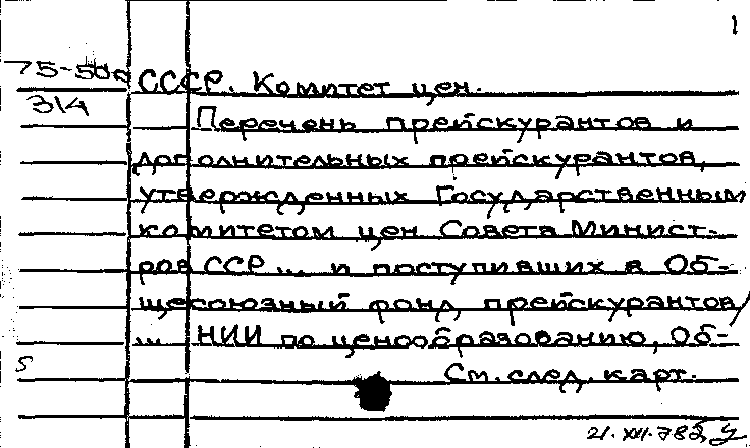 1
75-50
СССР. Комитет цен.
3/4
Перечень прейскурантов и
дополнительных прейскурантов,
утвержденных Государственным
комитетом цен Совета Минист-
ров ССР... и поступивших в Об-
щесоюзный фонд прейскурантов/
... НИИ по ценообразованию, Об-
5
См. след. карт.
21.XII.78